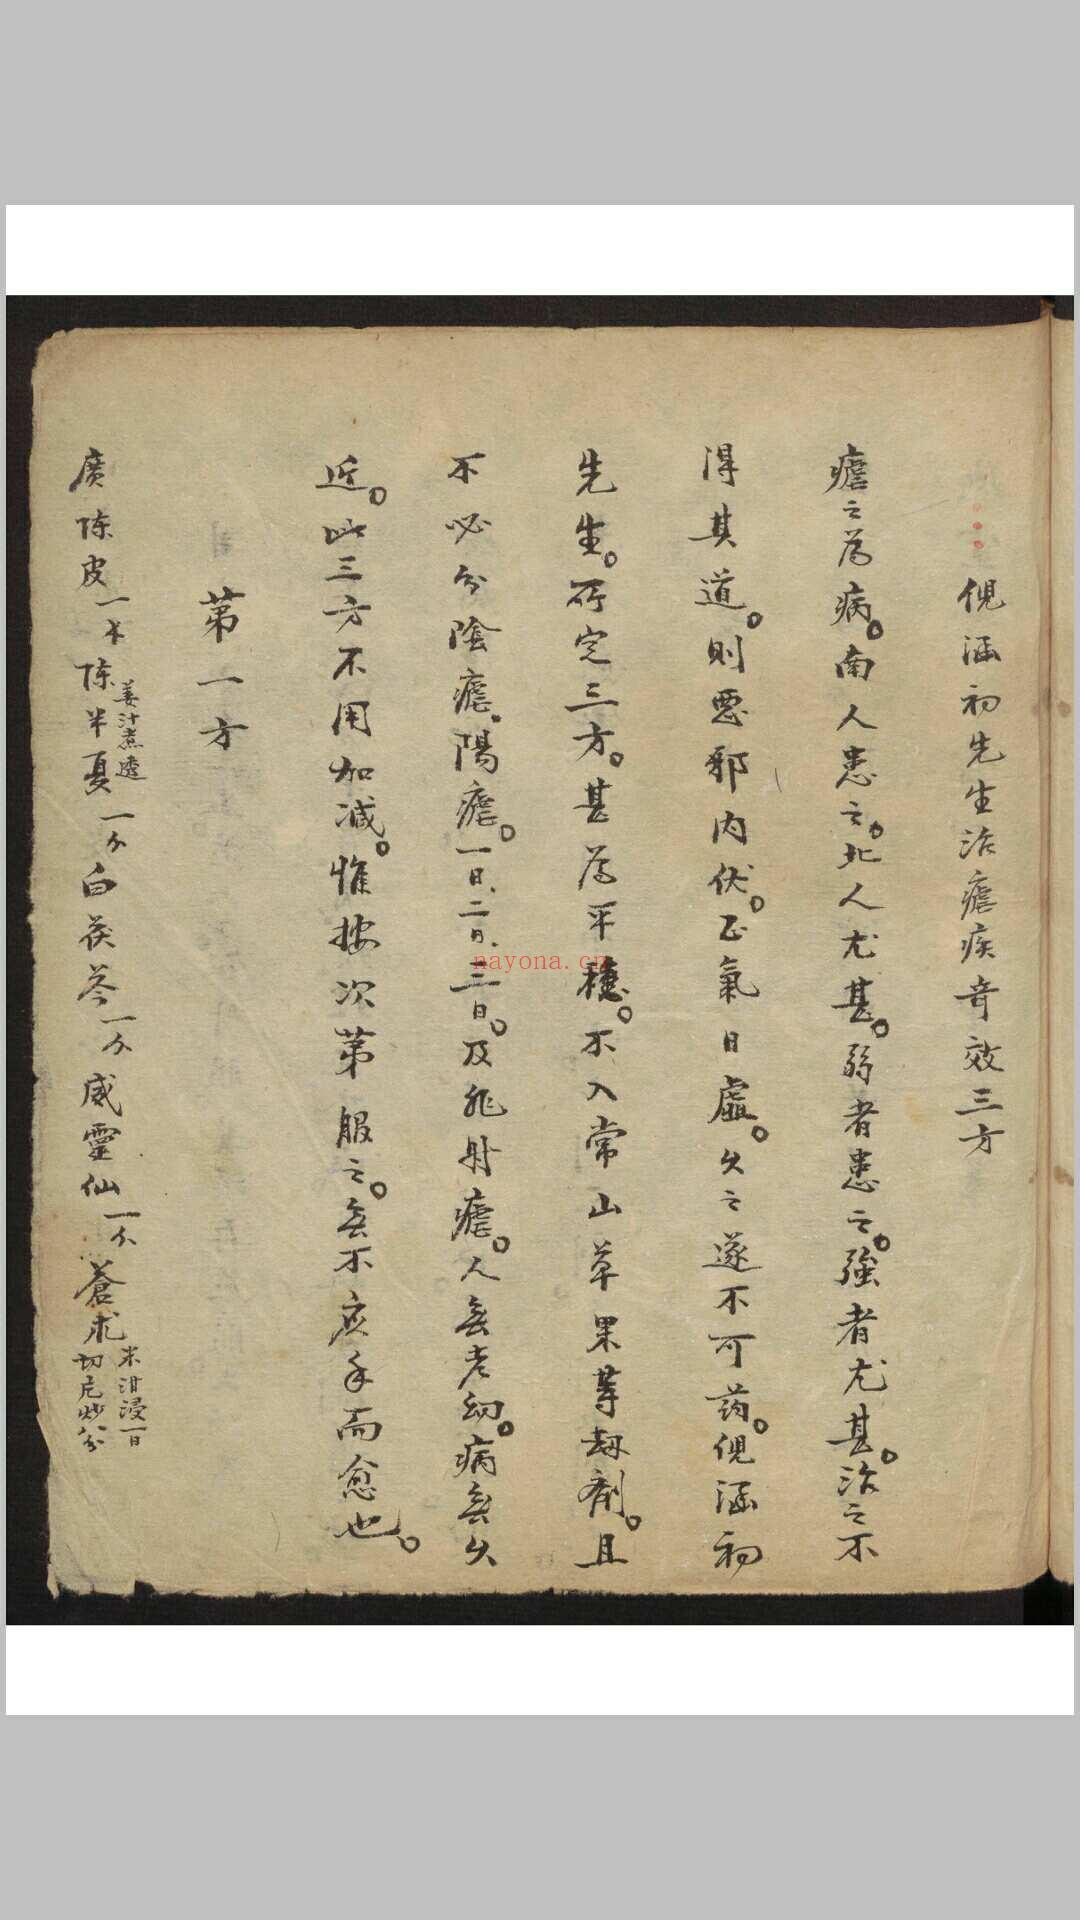 倪涵初先生治瘧疾奇效三方
瘧之為病。南人患之。北人尤甚。弱者患之。強者尤甚。治之不
得其道。則惡邪內伏。正氣日虛。久之遂不可药。倪涵初
先生。所定三方。甚為平穩。不入常山草果等劫劑。且
不必分陰瘧、陽瘧。一日、二日、三日。及非時瘧。人無老幼。病無久
近。此三方不用加减。惟按次第服之。無不应手而愈也。
第一方
廣陈皮一卜陈半夏姜汁煮透一分白茯苓一分威靈仙一分蒼朮米泔浸一日切片炒分
nayona.cn